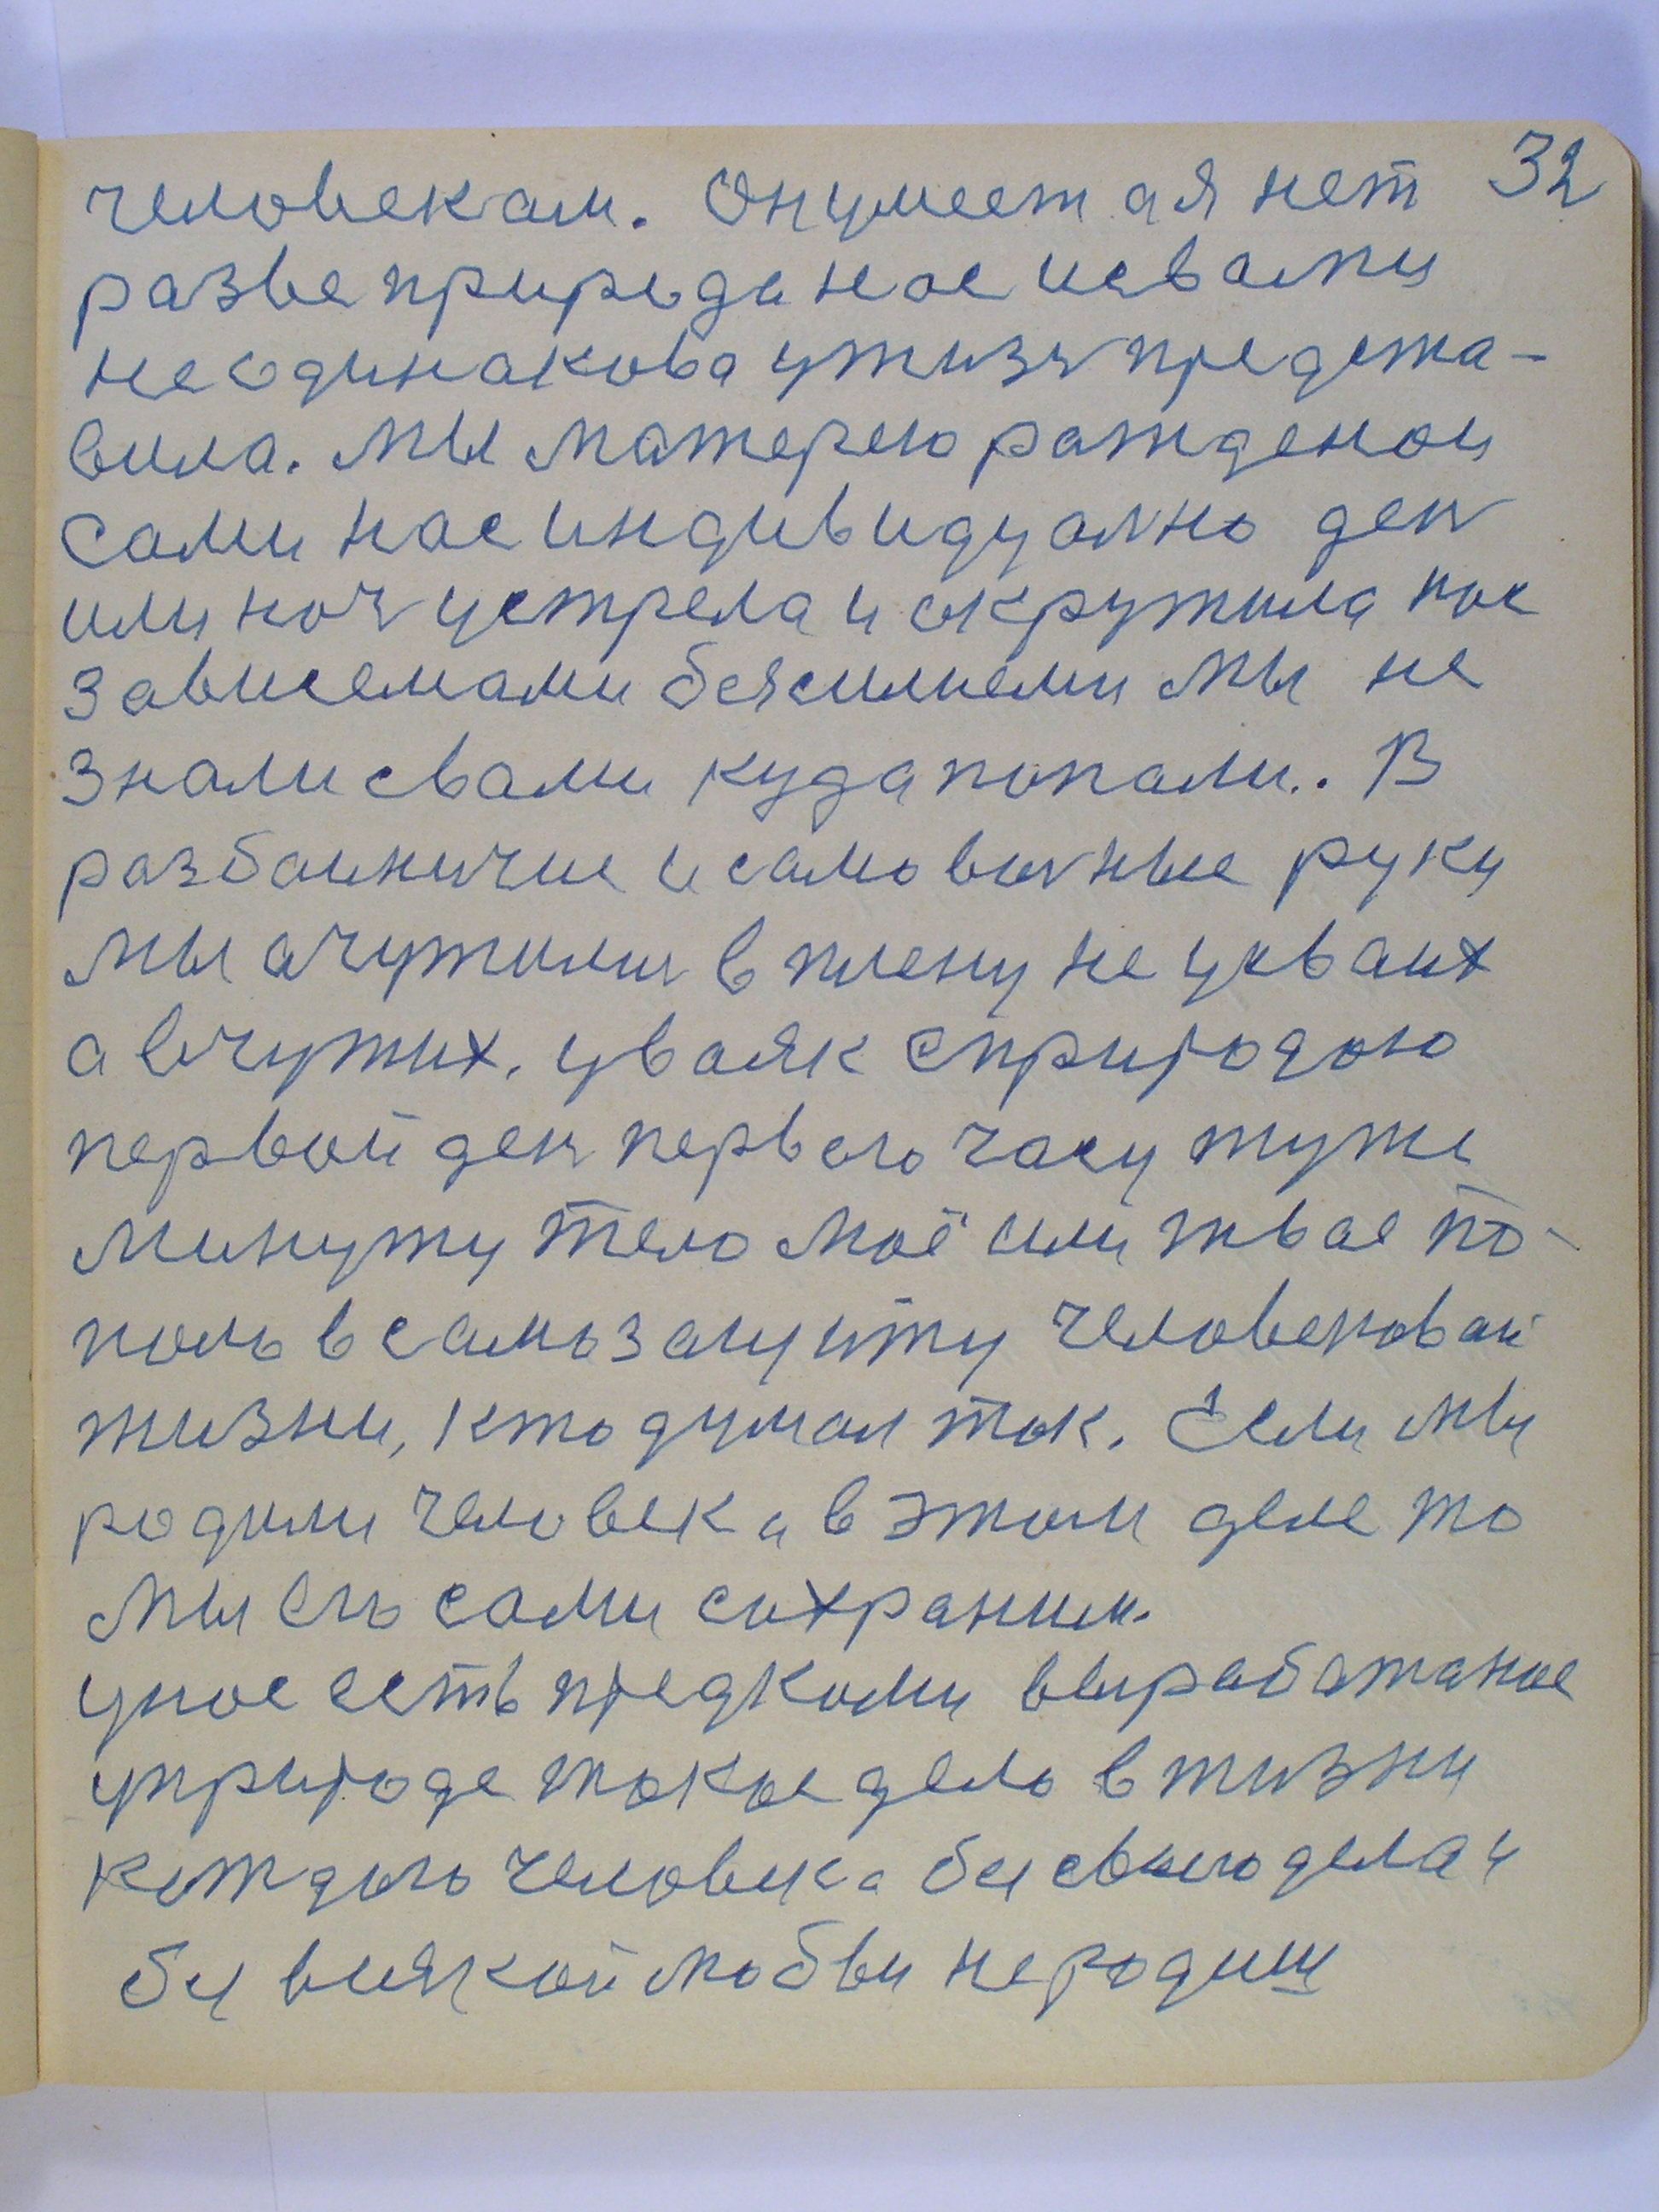 человекам. Он умеет а я нет 32
разве природа нас исвами
не одинакова ужизн предста-
вила. Мы матерею рожденои
сами нас индивидуално ден
или ноч устрела и окружила нас
зависемами бессилнеми Мы не
знали свами куда попали.. В
разбоиничие и самовичные руки
мы очутилис в плену не усваих
а вчужих. уваяк сприродою
первой ден первого часу туже
минуту тело моё или твае по-
пало в самозащиту человековай
жизни, кто думал так. Если мы
родили человека в этом деле то
мы его сами сохраним.
унас есть предками выработаное
уприроде такое дело в жизни
каждого человека бес своего дела и
без всякой любви не родиш